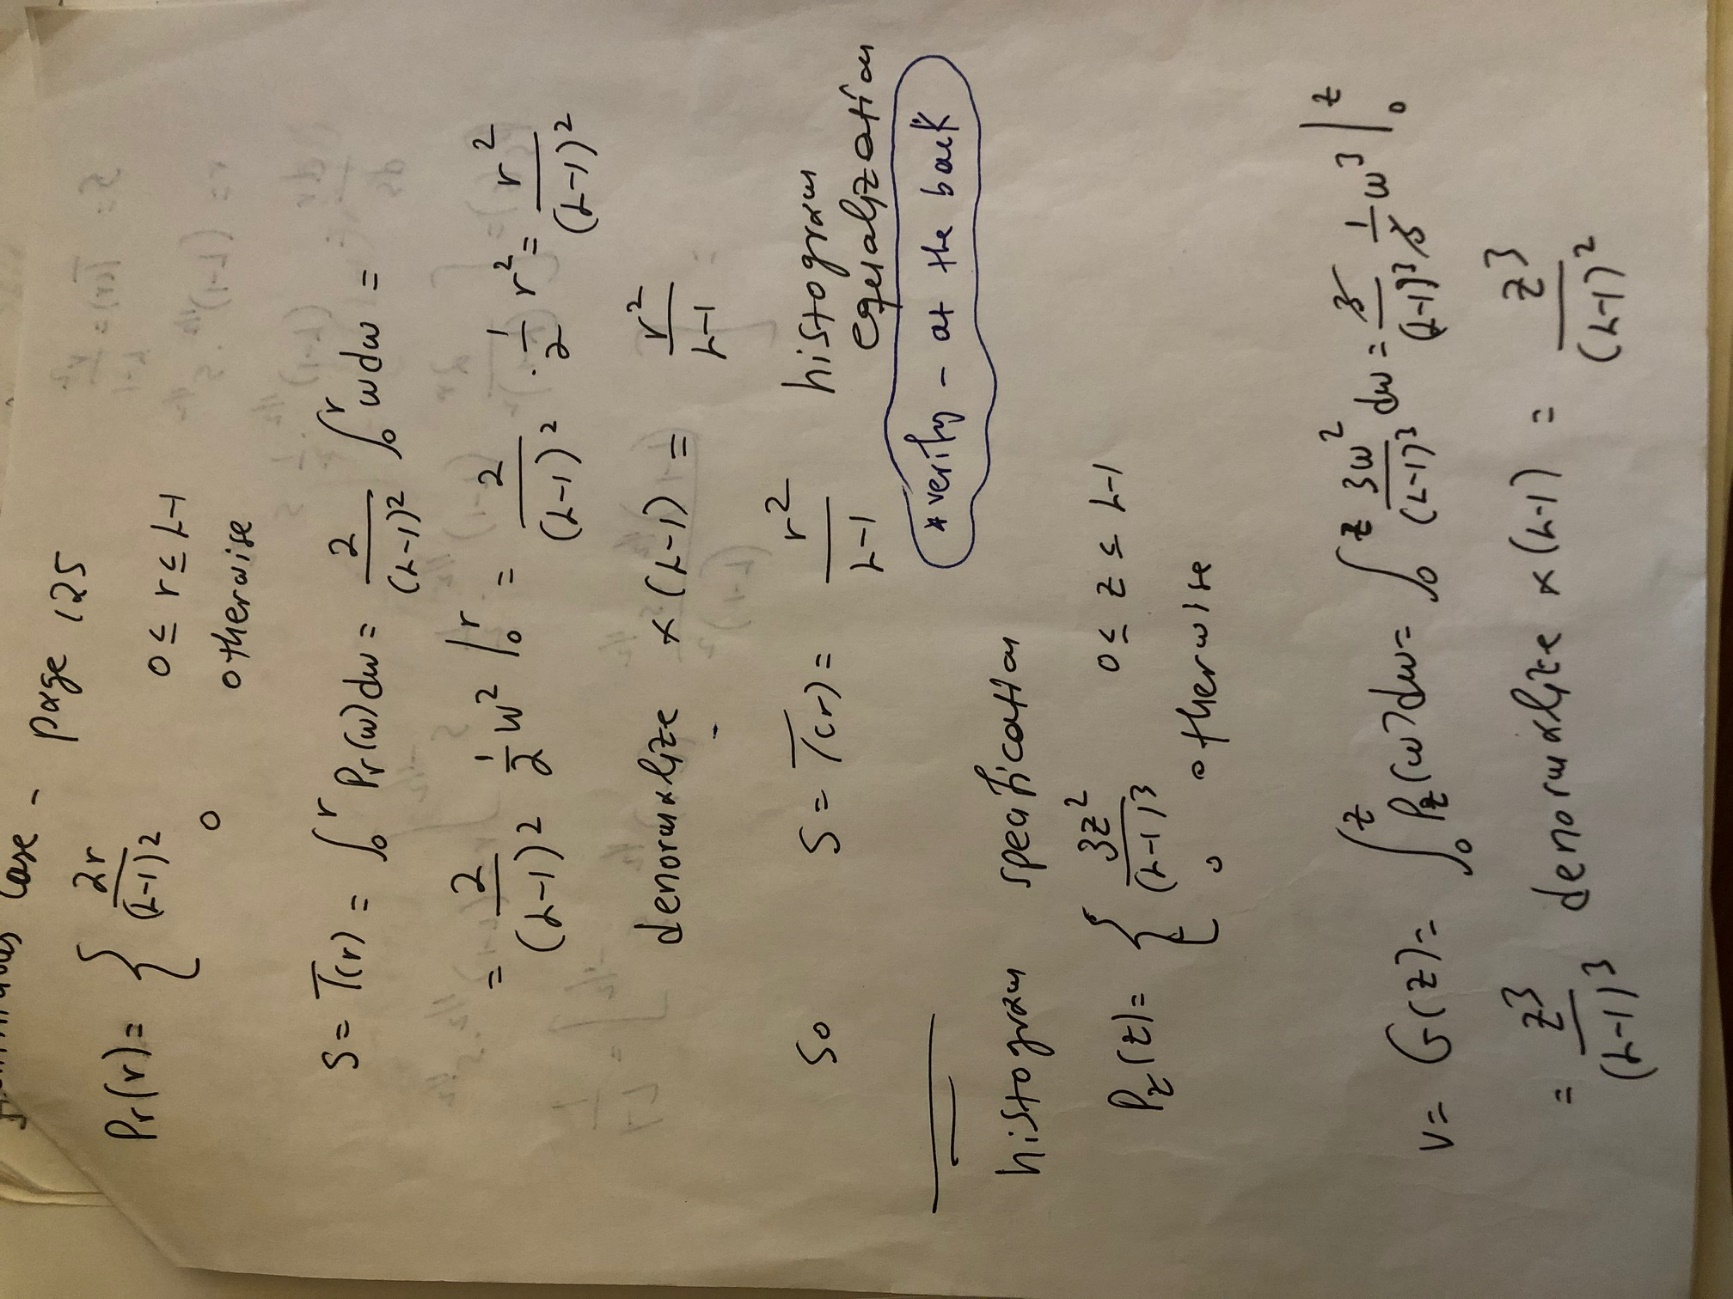 Case - page 125
Pr(r) = { 2r/(L-1)² 0 ≤ r ≤ L-1
0 otherwise
S = T(r) = ∫₀ʳ Pr(w)dw = 2/(L-1)² ∫₀ʳ w dw =
= 2/(L-1)² ½ w² |₀ʳ = 2/(L-1)² · ½ r² = r²/(L-1)²
denormalize × (L-1) = r²/L-1
So S = T(r) = r²/L-1 histogram
equalization
* verify - at the back
histogram specification
Pz(z) = { 3z²/(L-1)³ 0 ≤ z ≤ L-1
0 otherwise
V = G(z) = ∫₀ᶻ Pz(w)dw = ∫₀ᶻ 3w²/(L-1)³ dw = 3/(L-1)³ 1/3 w³ |₀ᶻ
= z³/(L-1)³ denormalize × (L-1) = z³/(L-1)²